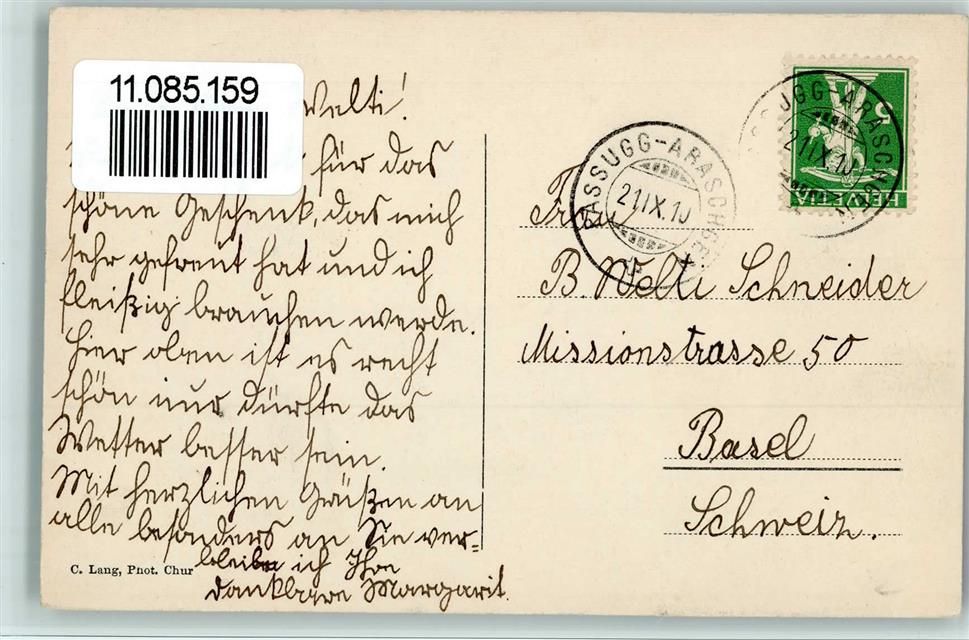 11.085.159
Welti!
für das
schöne Geschenk, das mich
sehr gefreut hat und ich
fleißig brauchen werde.
Hier oben ist es recht
schön nur dürfte das
Wetter besser sein.
Mit herzlichen Grüßen an
alle besonders an Sie ver=
bleibe ich Ihre
dankbare Margarit.
C. Lang, Phot. Chur
PASSUGG-ARASCHGEN
21.IX.10
PASSUGG-ARASCHGEN
21.IX.10
5
HELVETIA
Frau
B. Welti Schneider
Missionstrasse 50
Basel
Schweiz.